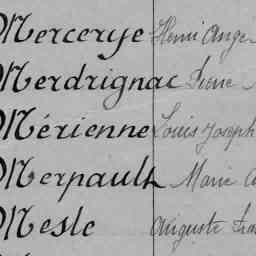 Mercerye Henri Ange
Merdrignac
Mérienne Louis Joseph
Merpault Marie
Mesle Auguste